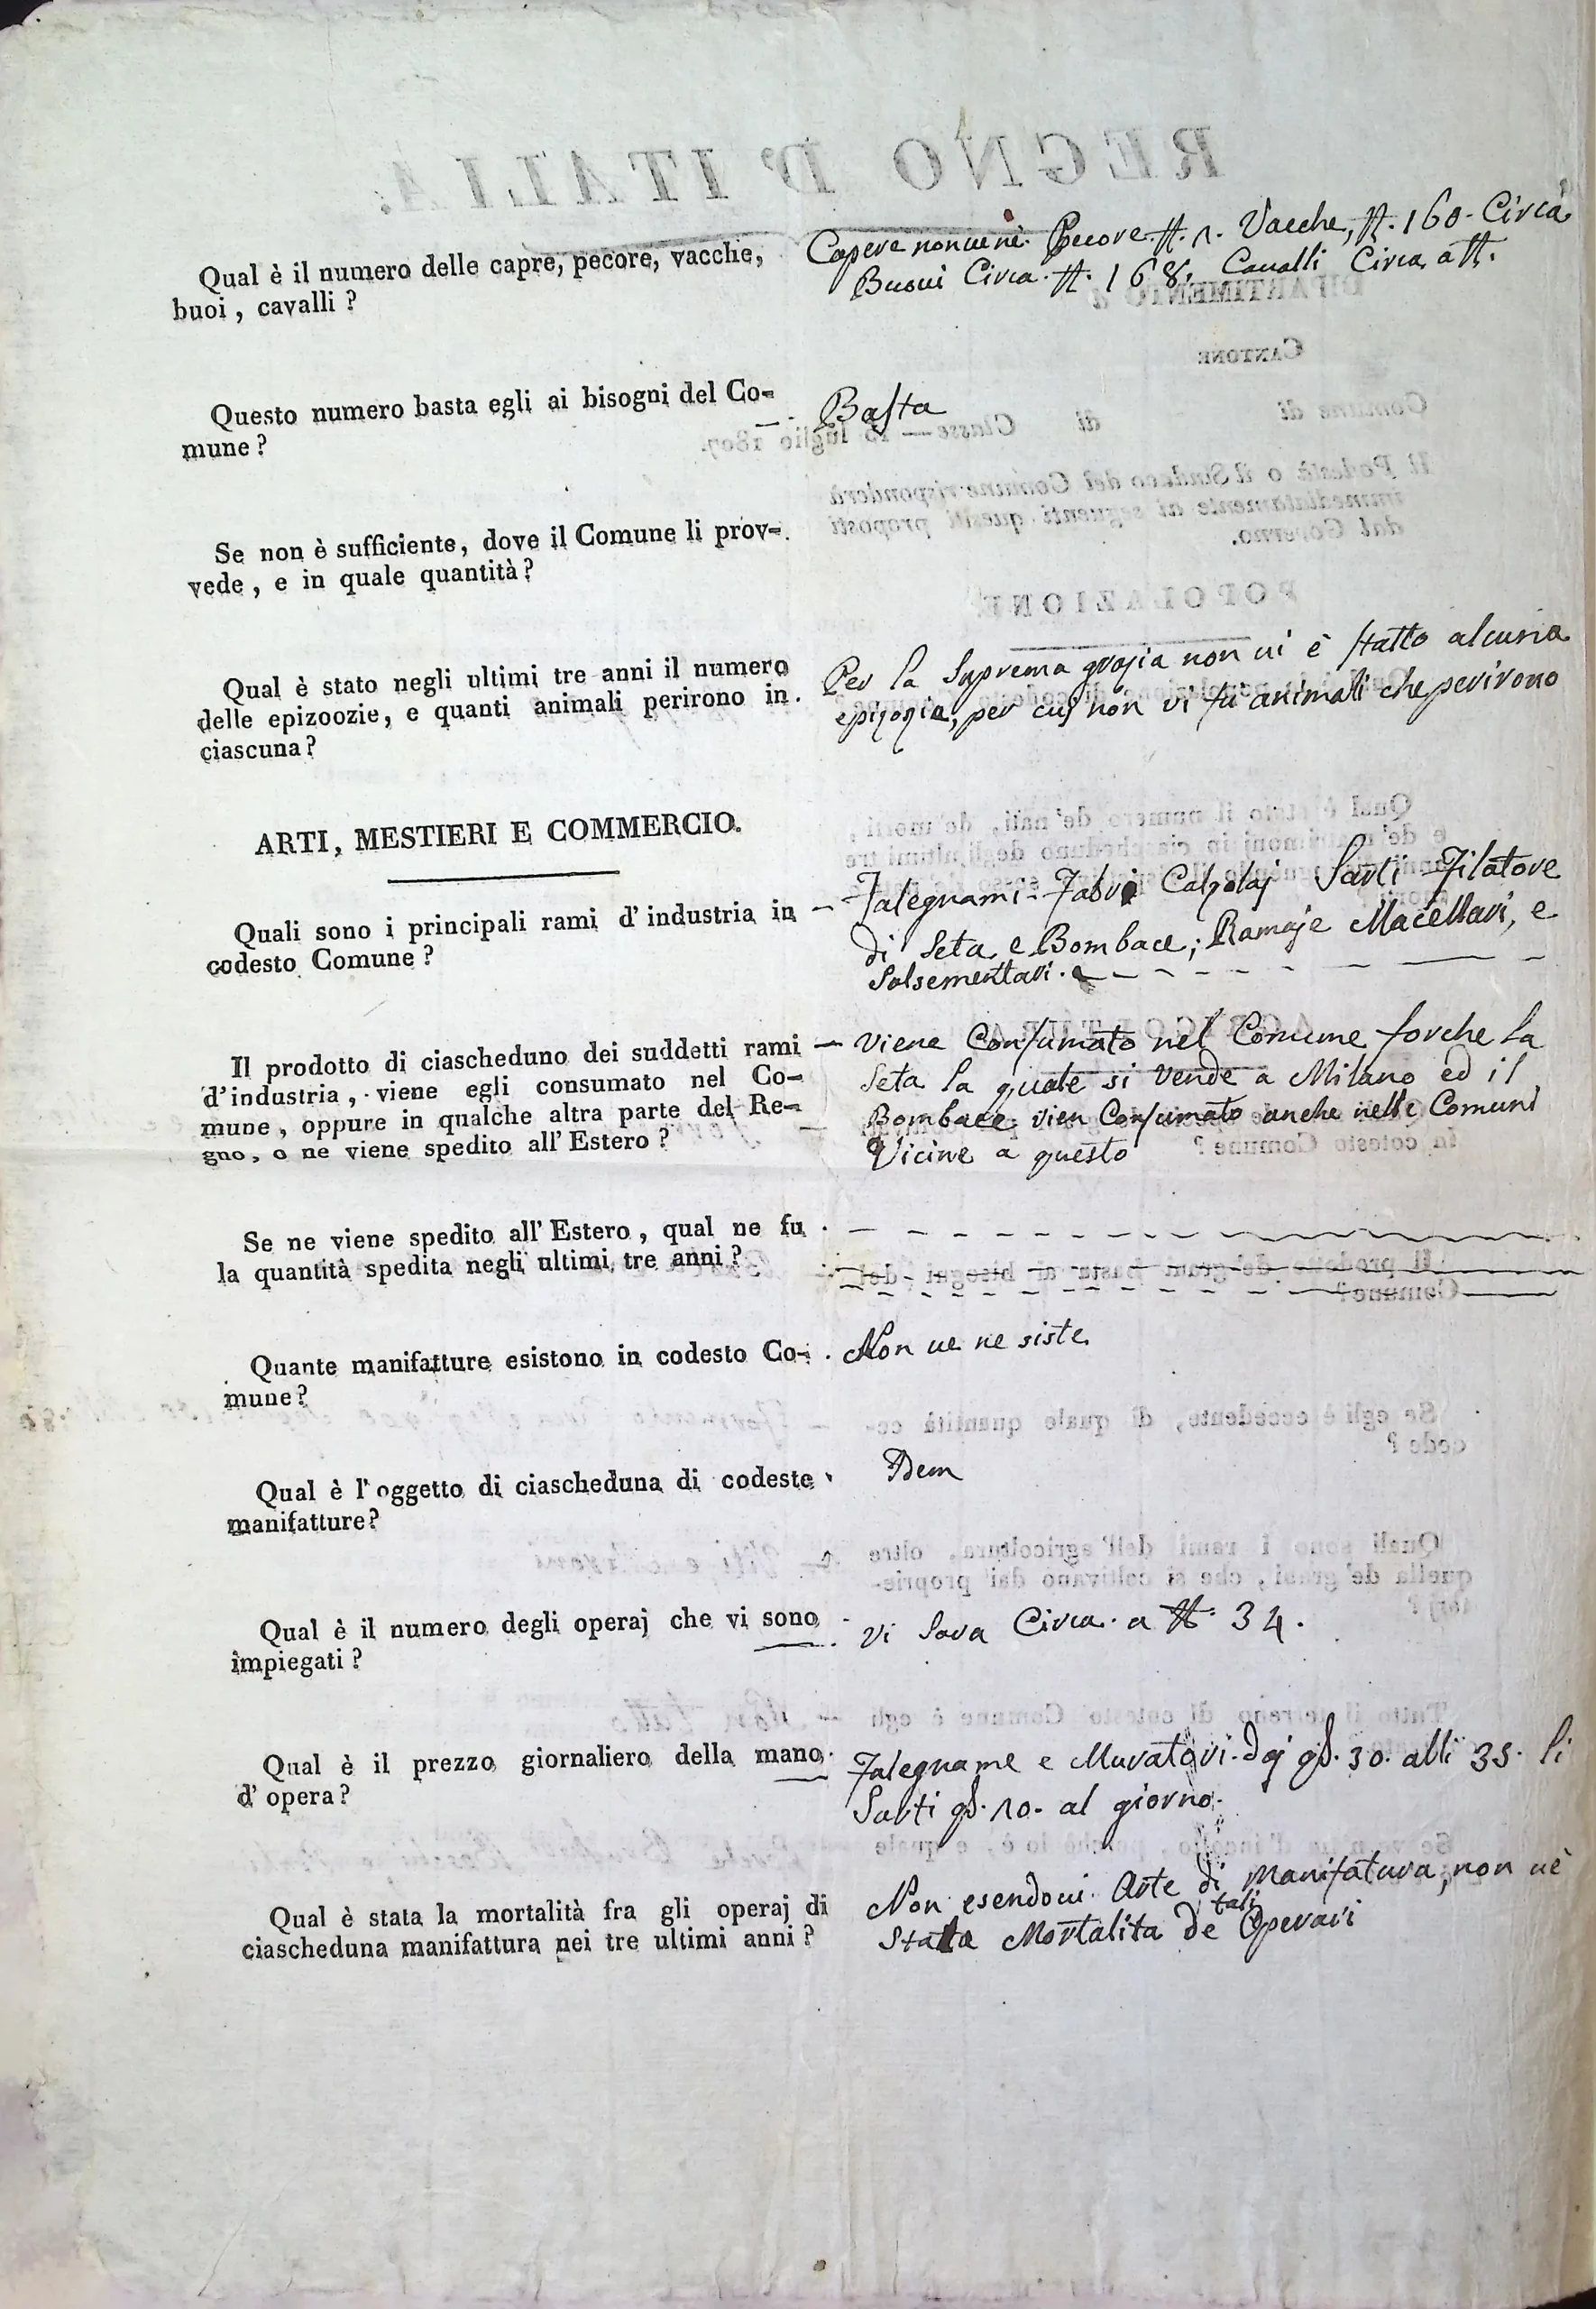 Qual è il numero delle capre, pecore, vacche,
buoi, cavalli?
Capere non ui nè. Pecore. N. 1. Vacche, N. 160. Circa
Buoui Circa. N. 168. Caualli Circa a N.
Questo numero basta egli ai bisogni del Co-
mune?
Basta
Se non è sufficiente, dove il Comune li prov-
vede, e in quale quantità?
Qual è stato negli ultimi tre anni il numero
delle epizoozie, e quanti animali perirono in
ciascuna?
Per la Suprema grazia non ui è statto alcuna
epizozia, per cuj non vi fù animali che perirono
ARTI, MESTIERI E COMMERCIO.
Quali sono i principali rami d'industria in
codesto Comune?
Falegnami - Fabri Calzolaj Sarti Filatore
di Seta e Bombace; Ramaje Macellari, e
Salsementari.
Il prodotto di ciascheduno dei suddetti rami
d'industria, viene egli consumato nel Co-
mune, oppure in qualche altra parte del Re-
gno, o ne viene spedito all'Estero?
Viene Consumato nel Comune forche la
Seta la quale si Vende a Milano ed il
Bombace vien Consumato anche nelle Comuni
Vicine a questo
Se ne viene spedito all'Estero, qual ne fu
la quantità spedita negli ultimi tre anni?
Quante manifatture esistono in codesto Co-
mune?
Non ue ne siste
Qual è l'oggetto di ciascheduna di codeste
manifatture?
Idem
Qual è il numero degli operaj che vi sono
impiegati?
Vi Sara Circa. a N. 34.
Qual è il prezzo giornaliero della mano
d'opera?
Falegname e Muratori. dai 30. alli 35. li
Sarti 10. al giorno.
Qual è stata la mortalità fra gli operaj di
ciascheduna manifattura nei tre ultimi anni?
Non esendoui Arte di Manifatura, non uè
Stata Mortalita de tali Operari
REGNO D'ITALIA.
DIPARTIMENTO d
CANTONE
Comune di
di Classe — 15 luglio 1807.
Il Podestà o il Sindaco del Comune risponderà
immediatamente ai seguenti quesiti proposti
dal Governo.
POPOLAZIONE